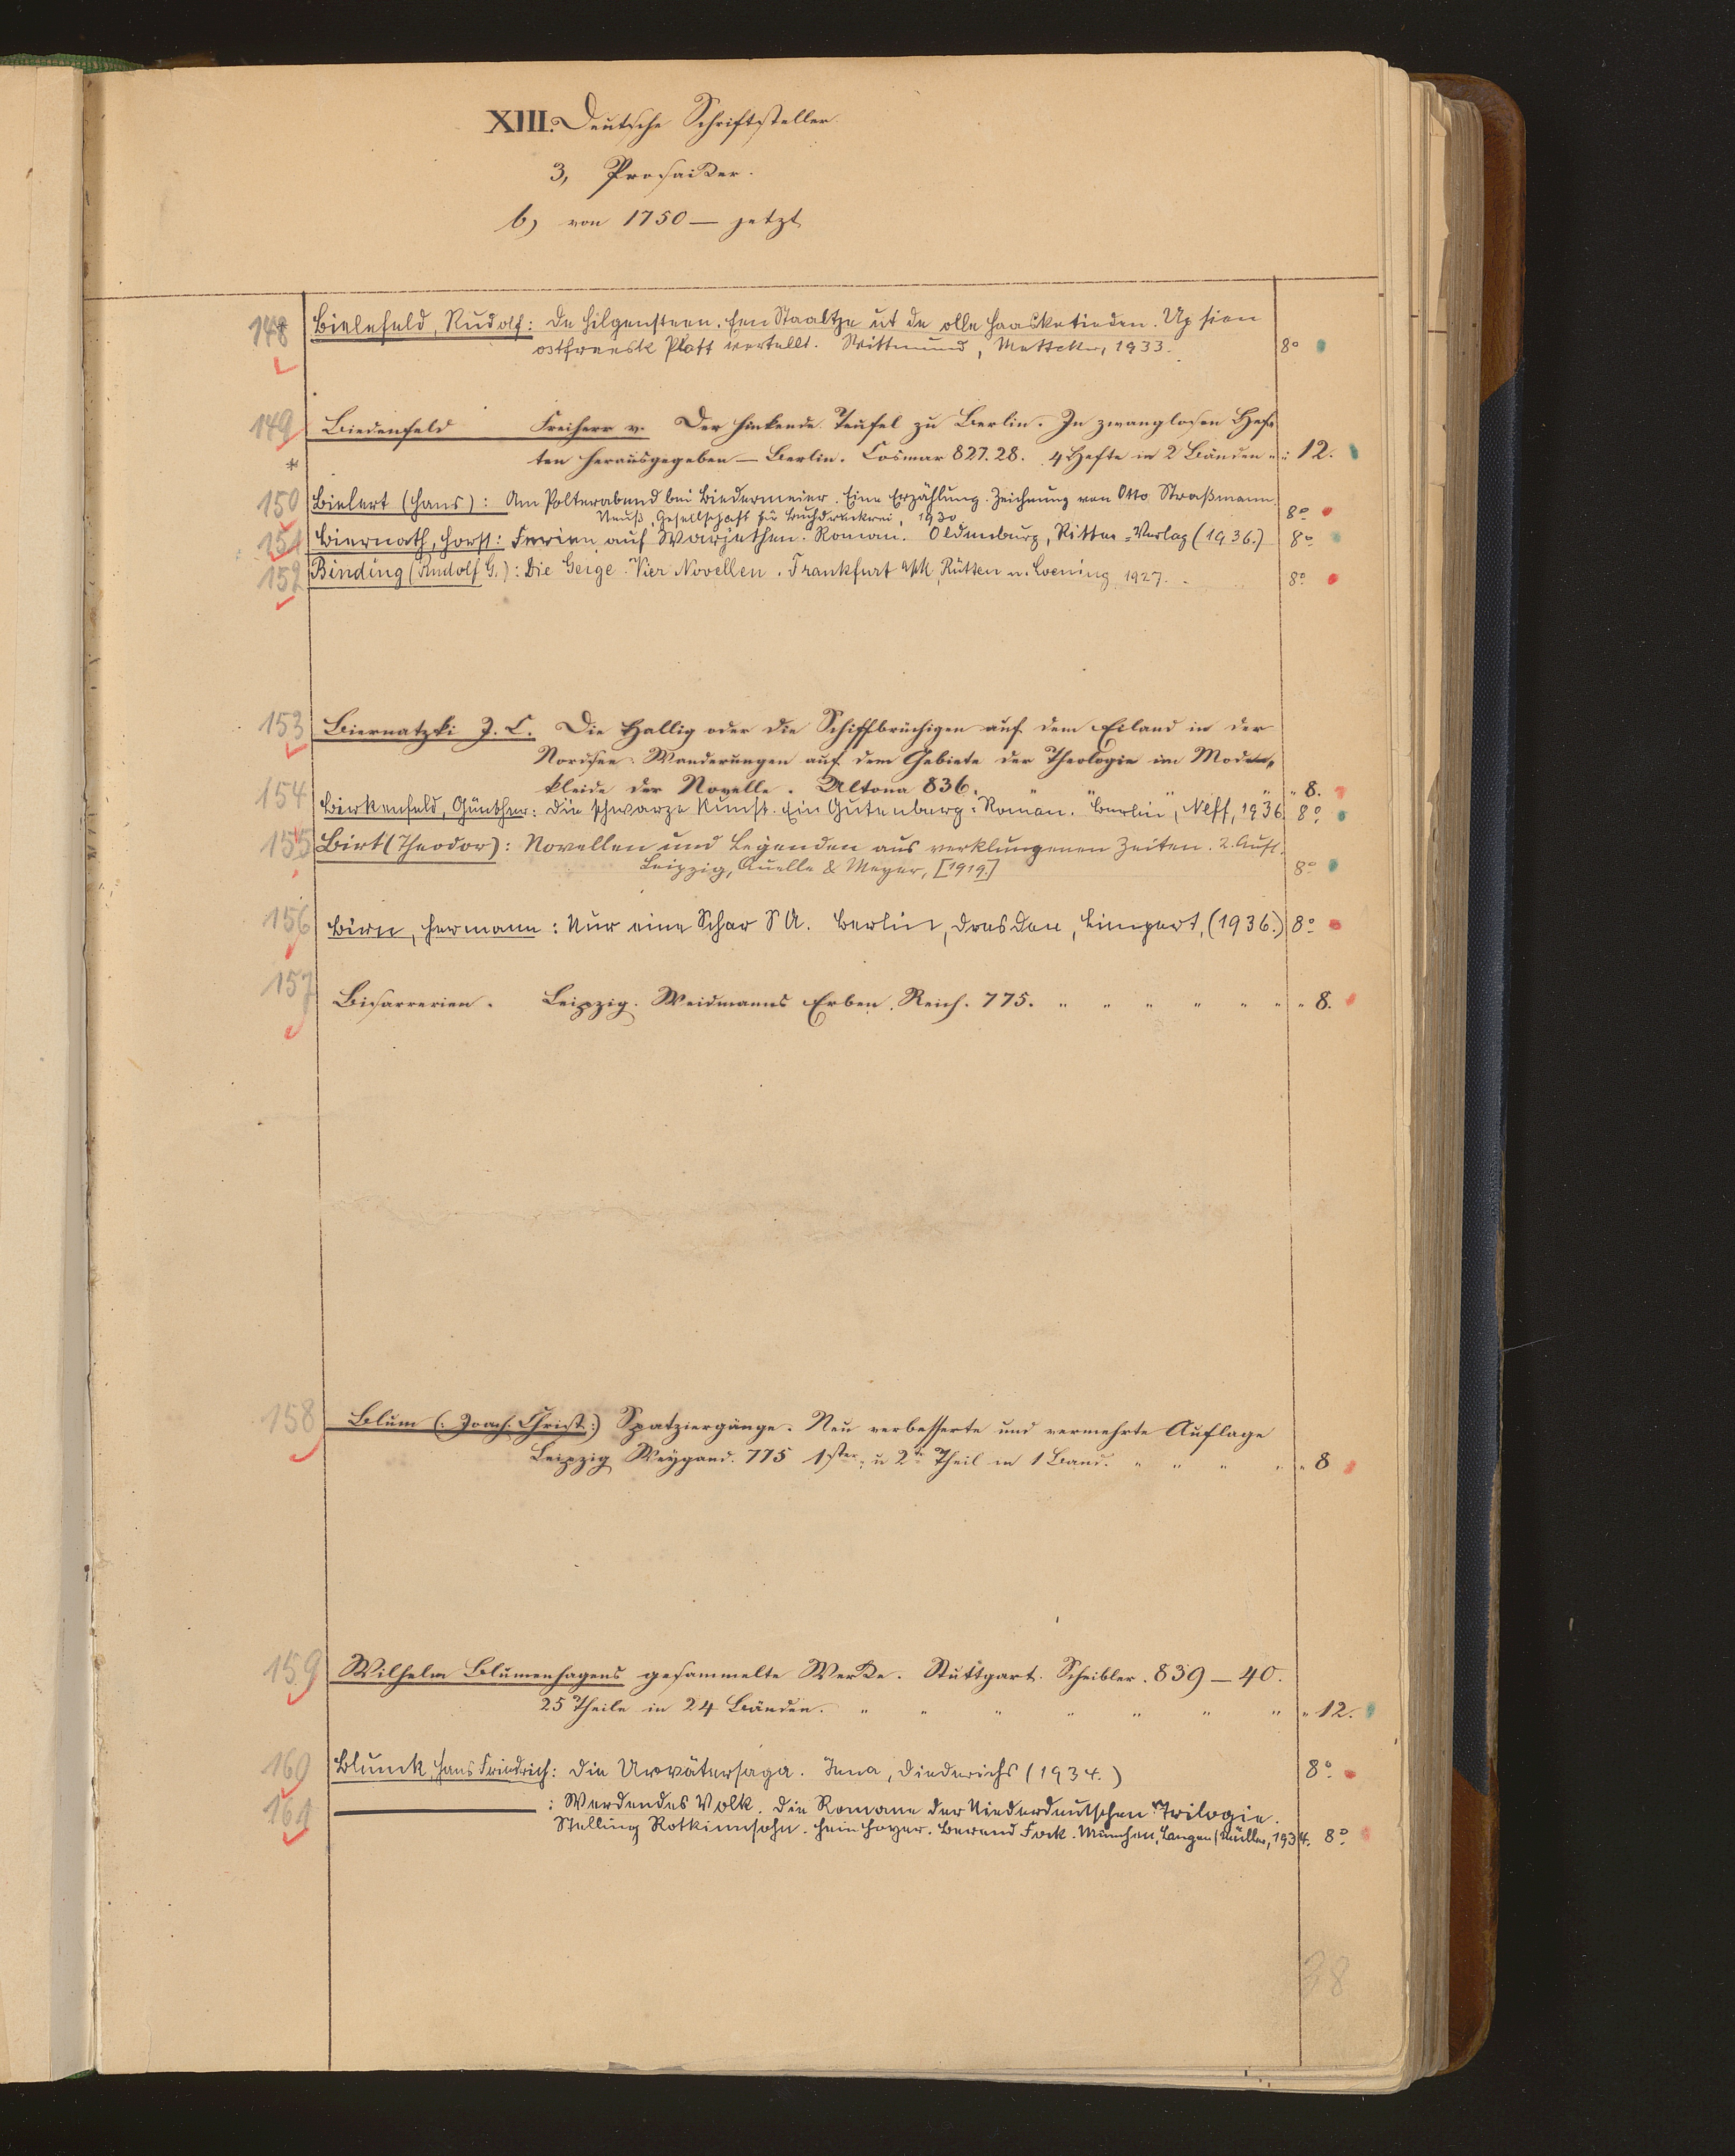 XIII. Deutsche Schriftsteller
3, Prosaiker.
b) von 1750 — jetzt
148 Bielefeld, Rudolf: De Hilgensteen. Een Staaltje ut de olle Haasketieden. Up sien
ostfreesk Platt vertellt. Wittmund, Mettcker, 1933. 8°
149 Biedenfeld Freiherr v. Der hinkende Teufel zu Berlin. In zwanglosen Hef-
* ten herausgegeben — Berlin. Cosmar 827.28. 4 Hefte in 2 Bänden " " 12.
150 Bielert (Hans): Am Polterabend bei Biedermeier. Eine Erzählung. Zeichnung von Otto Straßmann.
Neuß, Gesellschaft für Buchdruckerei, 1930 8°
151 Biernath, Horst: Ferien auf Warjethen. Roman. Oldenburg, Ritter=Verlag (1936.) 8°
152 Binding (Rudolf G.): Die Geige. Vier Novellen. Frankfurt a/M, Rütten u. Loening 1927. 8°
153 Biernatzki J. C. Die Hallig oder die Schiffbrüchigen auf dem Eiland in der
Nordsee. Wanderungen auf dem Gebiete der Theologie im Mode-
kleide der Novelle. Altona 836. " " " " " 8.
154 Birkenfeld, Günther: Die schwarze Kunst. Ein Gutenberg=Roman. Berlin, Neff, 1936. 8°
155 Birt (Theodor): Novellen und Legenden aus verklungenen Zeiten. 2. Aufl.
Leipzig, Quelle & Meyer, [1919.] 8°
156 Birn, Hermann: Nur eine Schar SA. Berlin, Dresden, Limpert, (1936.) 8°
157 Bisarrerien. Leipzig. Weidmanns Erben. Reich. 775. " " " " " " " 8.
158 Blum (: Joach. Christ:) Spatziergänge. Neu verbesserte und vermehrte Auflage
Leipzig Weygand. 775 1ster u 2te Theil in 1 Band. " " " " " 8
159 Wilhelm Blumenhagens gesammelte Werke. Stuttgart. Scheibler. 839 — 40.
25 Theile in 24 Bänden. " " " " " " " " 12.
160 Blunck, Hans Friedrich: Die Urvätersaga. Jena, Diederichs (1934.) 8°
161 ——— : Werdendes Volk. Die Romane der Niederdeutschen Trilogie.
Stelling Rotkinnsohn. Hein Hoyer. Berend Fock. München, Langen/Müller, 1934. 8°
38